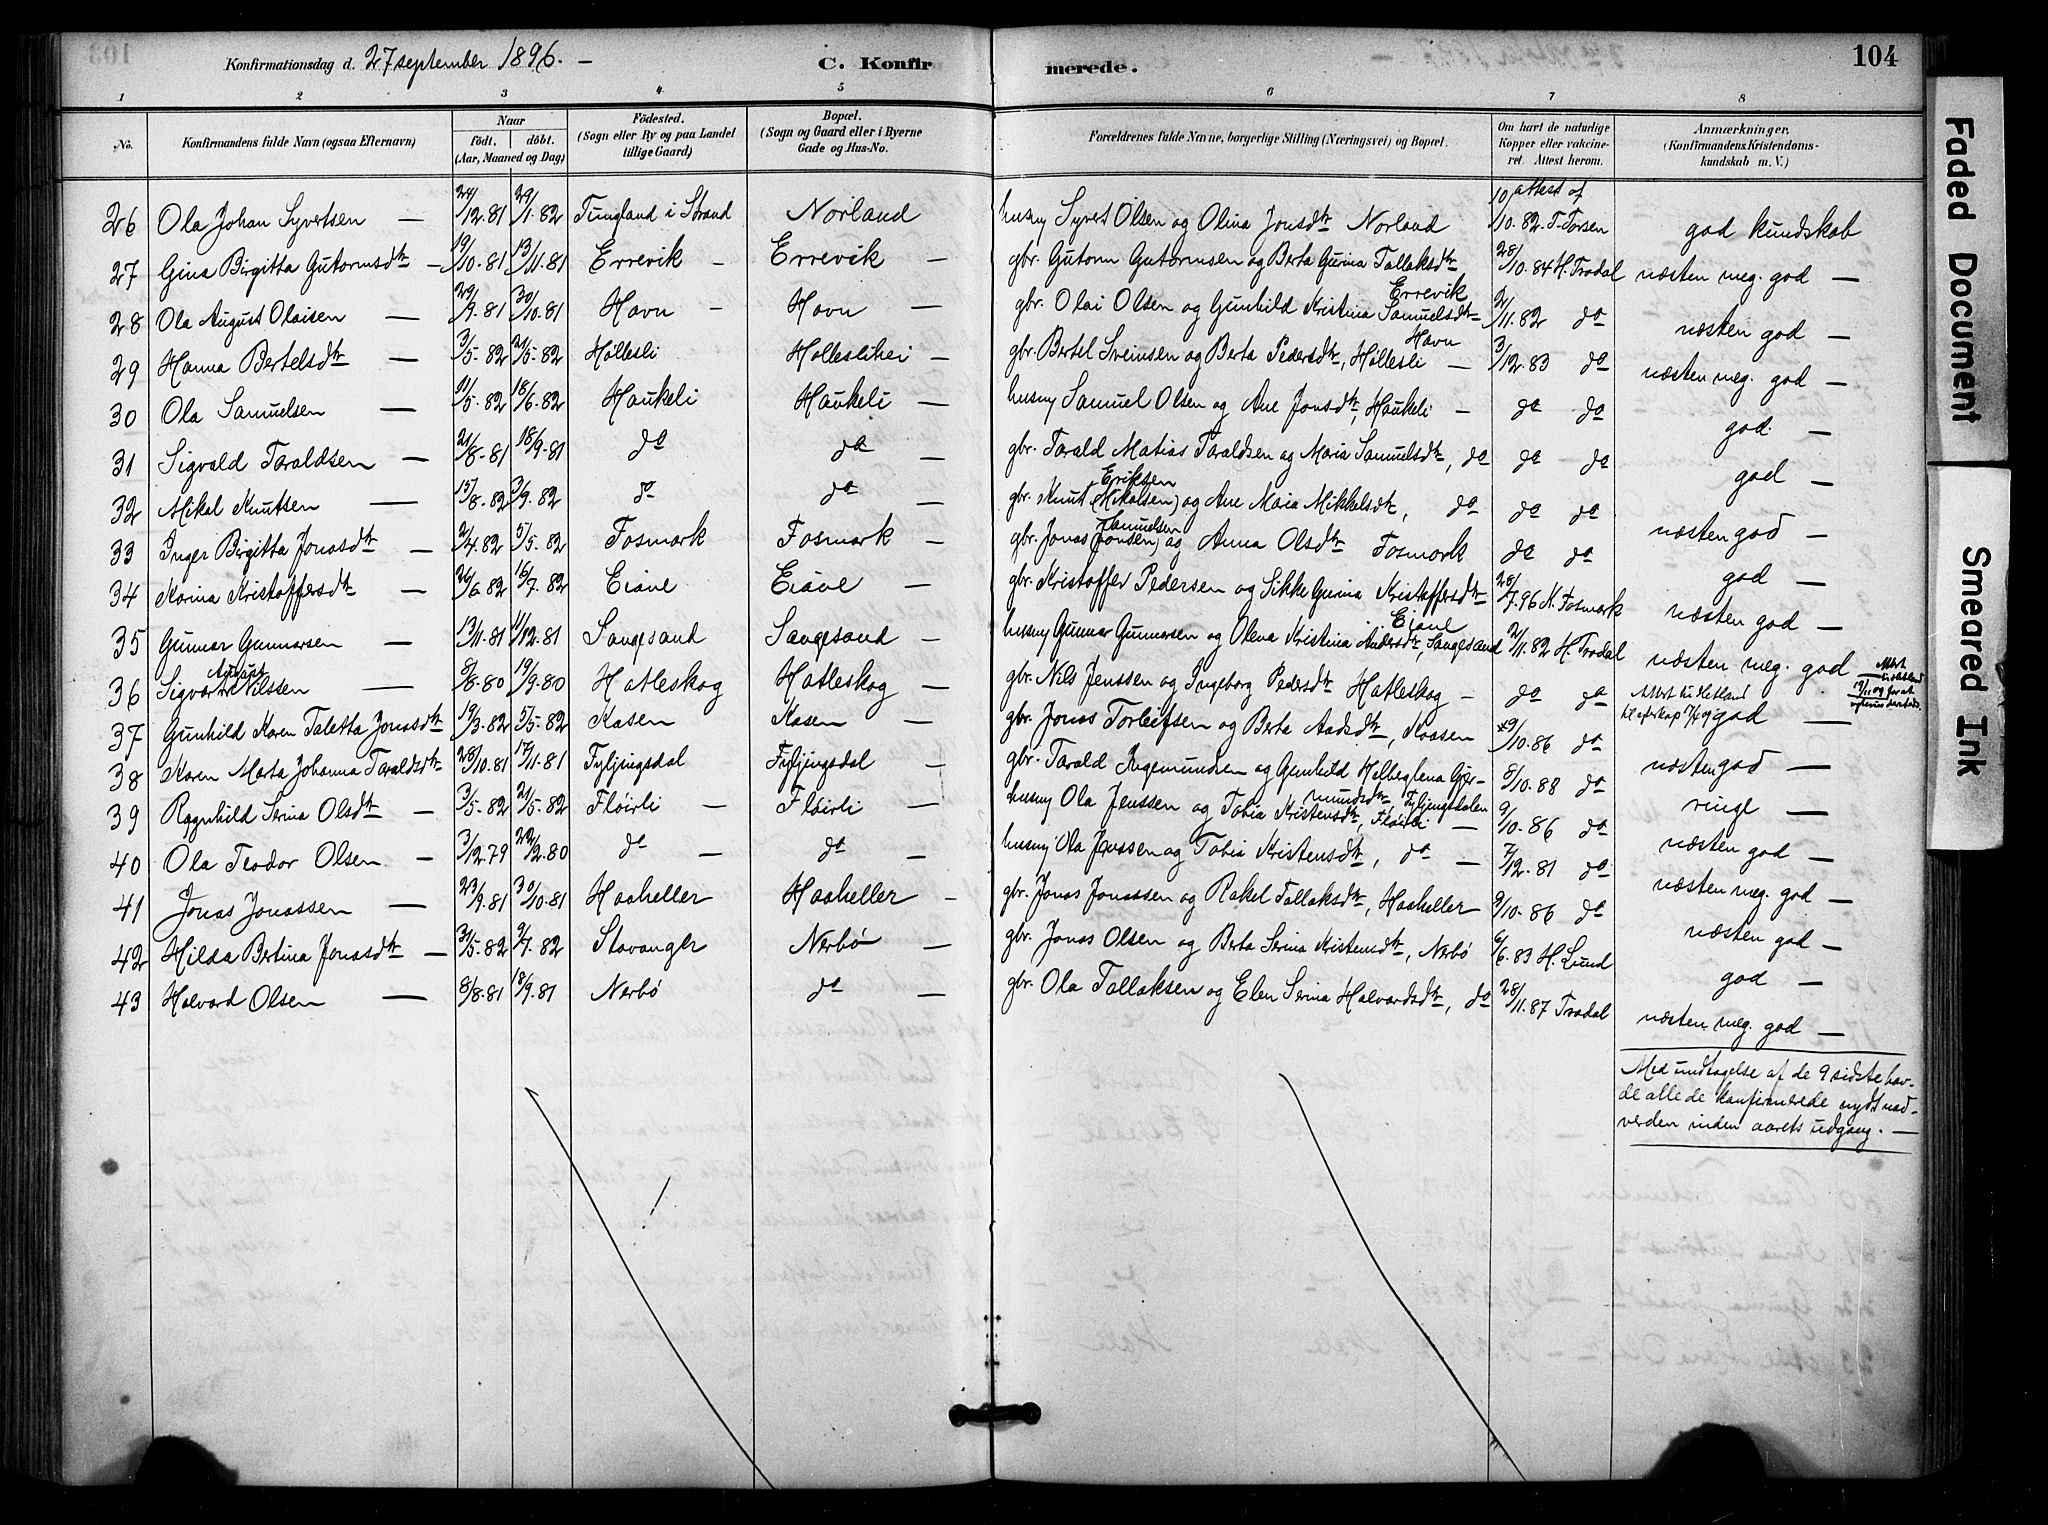 103
Konfirmationsdag d. 27 september 1896. —
C. Konfirmerede.
104
1 2 3 4 5 6 7 8
No. | Konfirmandens fulde Navn (ogsaa Efternavn) | Naar födt. döbt. (Aar, Maaned og Dag) | Födested. (Sogn eller By og paa Landet tillige Gaard) | Bopæl. (Sogn og Gaard eller i Byerne Gade og Hus-No. | Forældrenes fulde Navne, borgerlige Stilling (Næringsvei) og Bopæl. | Om havt de naturlige Kopper eller vakcineret. Attest herom. | Anmærkninger. (Konfirmandens Kristendomskundskab m. V.)
26 Ola Johan Syvertsen — 24/12.81 29/1.82 Tungland i Strand Norland husm Syvert Olsen og Olina Jonsdtr Norland 10/10.82 attest af T. Torsen god kundskab
27 Gina Birgitta Gutormsdtr — 19/10.81 13/11.81 Errevik — Errevik — gbr. Gutorm Gutormsen og Berta Gurina Tallaksdtr Errevik 28/10.84 H. Trodal næsten meg. god —
28 Ola August Olaisen — 29/9.81 30/10.81 Havn — Havn — gbr. Olai Olsen og Gunhild Kristina Samuelsdtr Havn 2/11.82 do næsten god —
29 Hanna Bertelsdtr — 3/5.82 21/5.82 Hollesli Holleslihei — gbr. Bertel Sveinsen og Berta Pedersdtr, Hollesli — 3/12.83 do næsten meg. god —
30 Ola Samuelsen — 11/5.82 18/6.82 Haukeli Haukeli — husm Samuel Olsen og Ane Jonsdtr, Haukeli — do do god. —
31 Sigvald Taraldsen — 21/8.81 18/9.81 do do — gbr. Tarald Matias Taraldsen og Maria Samuelsdtr, do do do god —
32 Mikal Knutsen — 15/8.82 3/9.82 do do — gbr. Knut Eriksen (Mikalsen) og Ane Maria Mikkelsdtr, do do do næsten god —
33 Inger Birgitta Jonasdtr — 2/4.82 5/5.82 Fosmark Fosmark — gbr. Jonas Samuelsen (Jonsen) og Anna Olsdtr Fosmark do do god —
34 Karina Kristoffersdtr — 26/6.82 16/7.82 Eiane Eiane — gbr. Kristoffer Pedersen og Sikke Gurina Kristoffersdtr Eiane 28/7.96 K. Fosmark næsten god —
35 Gunnar Gunnarsen — 13/11.81 11/12.81 Sangesand Sangesand — husm Gunnar Gunnarsen og Olena Kristina Andersdtr, Sangesand 2/11.82 H. Trodal næsten meg. god —
36 Sigvart August Nilssen — 8/8.80 19/9.80 Hatleskog Hatleskog — gbr. Nils Jenssen og Ingeborg Pedersdtr Hatleskog — do do god —
37 Gunhild Karen Taletta Jonasdtr 19/3.82 5/5.82 Kasen Kasen — gbr. Jonas Torleifsen og Berta Aadsdtr, Kaasen 9/10.86 do næsten god —
38 Karen Marta Johanna Taraldsdtr 28/10.81 17/11.81 Fyljingsdal Fyljingsdal — gbr. Tarald Ingemundsen og Gunhild Helleglena Gjermundsdtr, Fyljingsdalen 8/10.88 do ringe —
39 Ragnhild Serina Olsdtr — 3/5.82 21/5.82 Flöirli — Flöirli husm Ola Jenssen og Tobia Kristensdtr, Flöirli — 9/10.86 do næsten god —
40 Ola Teodor Olsen — 3/12.79 22/2.80 do — do — husm Ola Jenssen og Tobia Kristensdtr, do — 7/12.81 do næsten meg. god —
41 Jonas Jonassen — 23/9.81 30/10.81 Haaheller Haaheller — gbr. Jonas Jonassen og Rakel Tallaksdtr, Haaheller 9/10.86 do næsten god —
42 Hilda Bertina Jonasdtr — 31/5.82 9/7.82 Stavanger Nerbö — gbr. Jonas Olsen og Berta Serina Kristensdtr, Nerbö 6/6.83 H. Lund god —
43 Halvard Olsen — 8/8.81 18/9.81 Nerbö do — gbr. Ola Tallaksen og Elen Serina Halvardsdtr, do 28/11.87 Trodal næsten meg. god —
Med undtagelse af de 9 sidste hav-
de alle de konfirmerede nydt nad-
verden inden aarets udgang. —
Faded Document
Smeared Ink